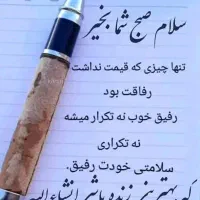 سلام صبح شما بخیر
تنها چیزی که قیمت نداشت
رفاقت بود
رفیق خوب نه تکرار میشه
نه تکراری
سلامتی خودت رفیق.
که بهترینی زنده باشی انشاءالله